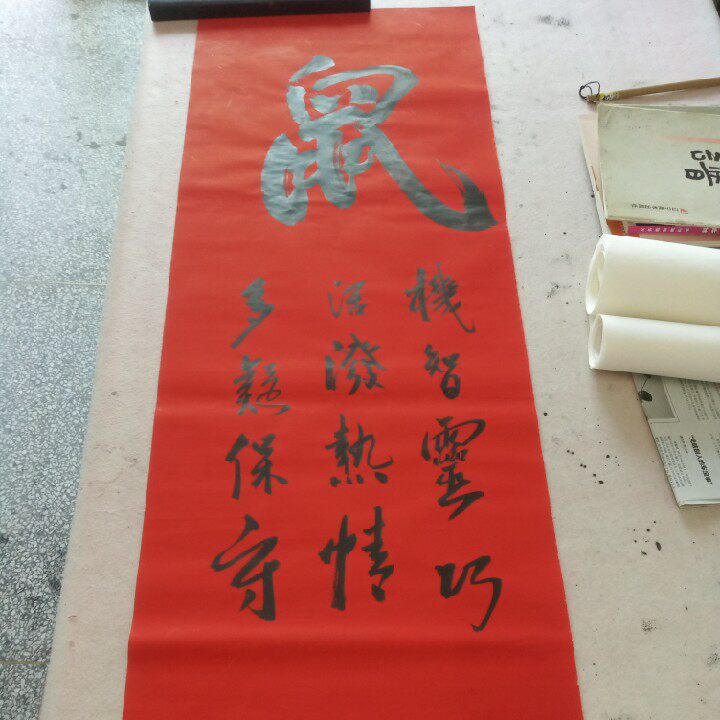 鼠
機智靈巧
活潑熱情
多疑保守